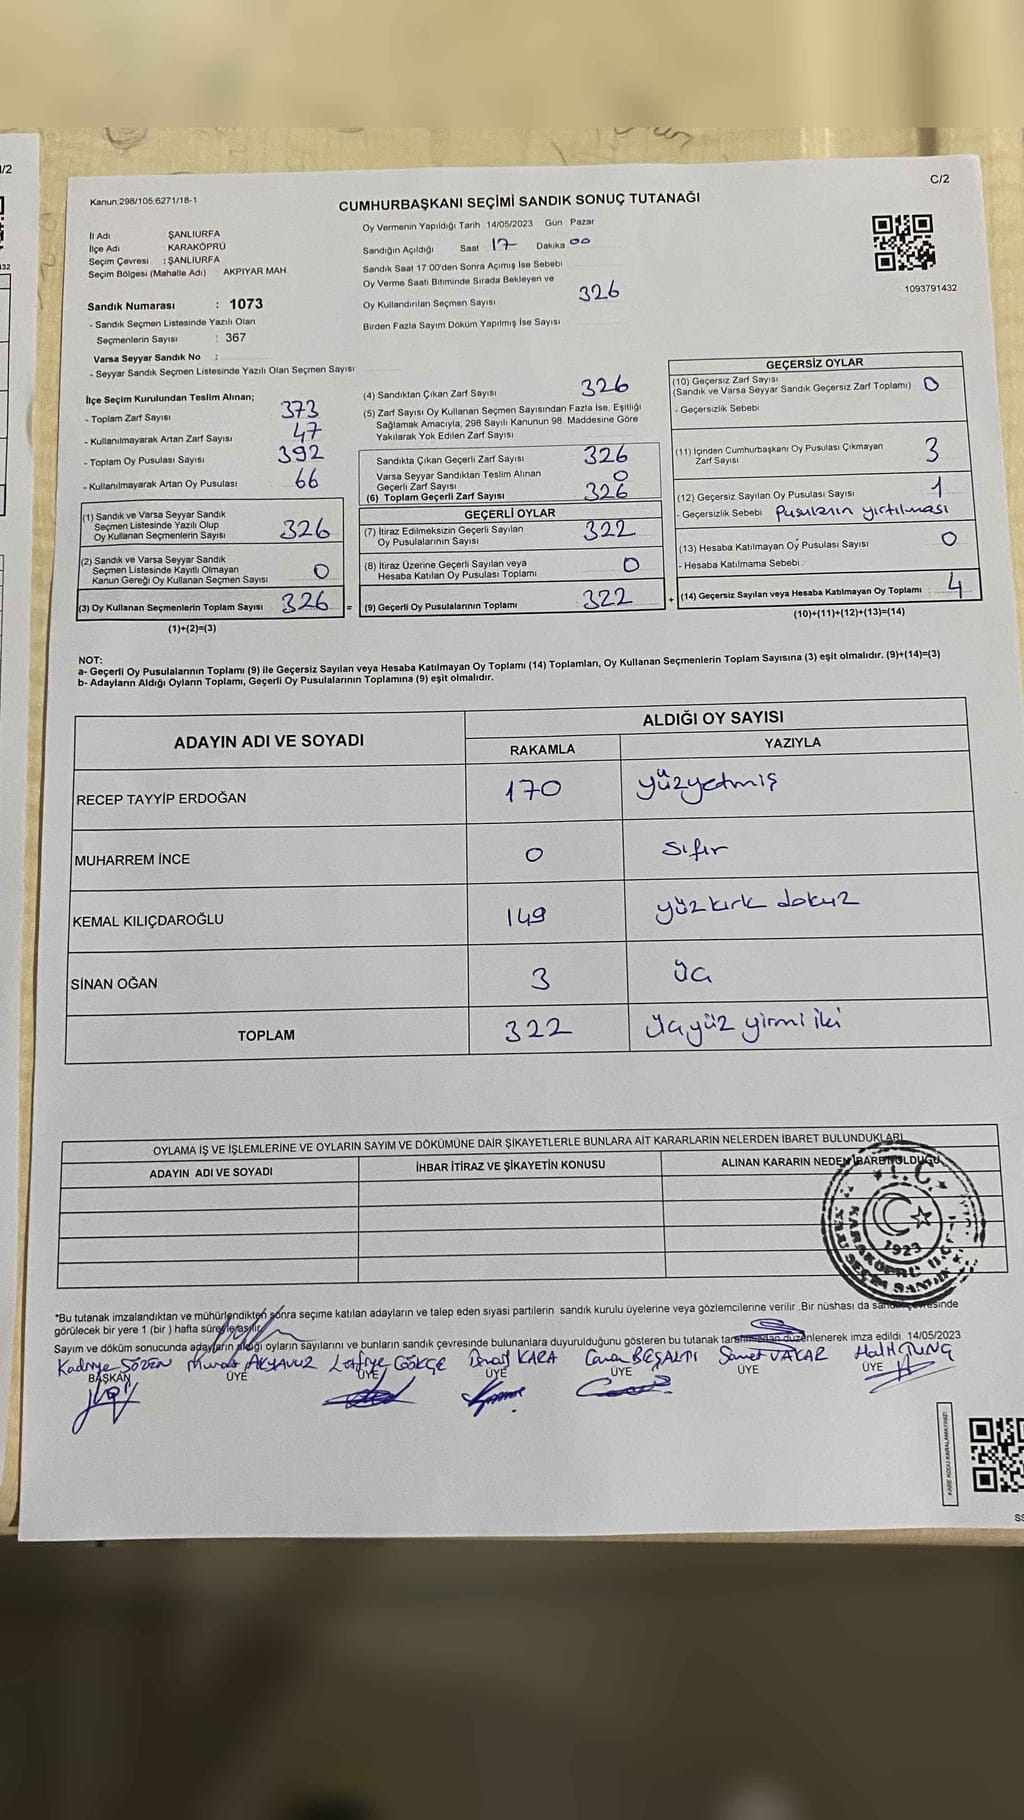 C/2
Kanun:298/105;6271/18-1
CUMHURBAŞKANI SEÇİMİ SANDIK SONUÇ TUTANAĞI
İl Adı ŞANLIURFA
İlçe Adı : KARAKÖPRÜ
Seçim Çevresi : ŞANLIURFA
Seçim Bölgesi (Mahalle Adı) AKPIYAR MAH.
Sandık Numarası : 1073
- Sandık Seçmen Listesinde Yazılı Olan
Seçmenlerin Sayısı : 367
Varsa Seyyar Sandık No :
- Seyyar Sandık Seçmen Listesinde Yazılı Olan Seçmen Sayısı
Oy Vermenin Yapıldığı Tarih 14/05/2023 Gün Pazar
Sandığın Açıldığı Saat 17 Dakika 00
Sandık Saat 17:00'den Sonra Açımış İse Sebebi
Oy Verme Saati Bitiminde Sırada Bekleyen ve
Oy Kullandırılan Seçmen Sayısı 326
Birden Fazla Sayım Döküm Yapılmış İse Sayısı
1093791432
İlçe Seçim Kurulundan Teslim Alınan;
- Toplam Zarf Sayısı 373
- Kullanılmayarak Artan Zarf Sayısı 47
- Toplam Oy Pusulası Sayısı 392
- Kullanılmayarak Artan Oy Pusulası 66
(1) Sandık ve Varsa Seyyar Sandık
Seçmen Listesinde Yazılı Olup
Oy Kullanan Seçmenlerin Sayısı 326
(2) Sandık ve Varsa Seyyar Sandık
Seçmen Listesinde Kayıtlı Olmayan
Kanun Gereği Oy Kullanan Seçmen Sayısı 0
(3) Oy Kullanan Seçmenlerin Toplam Sayısı 326 =
(1)+(2)=(3)
(4) Sandıktan Çıkan Zarf Sayısı 326
(5) Zarf Sayısı Oy Kullanan Seçmen Sayısından Fazla İse, Eşitliği
Sağlamak Amacıyla, 298 Sayılı Kanunun 98. Maddesine Göre
Yakılarak Yok Edilen Zarf Sayısı
Sandıkta Çıkan Geçerli Zarf Sayısı 326
Varsa Seyyar Sandıktan Teslim Alınan
Geçerli Zarf Sayısı 0
(6) Toplam Geçerli Zarf Sayısı 326
GEÇERLİ OYLAR
(7) İtiraz Edilmeksizin Geçerli Sayılan
Oy Pusulalarının Sayısı 322
(8) İtiraz Üzerine Geçerli Sayılan veya
Hesaba Katılan Oy Pusulası Toplamı 0
(9) Geçerli Oy Pusulalarının Toplamı 322 +
GEÇERSİZ OYLAR
(10) Geçersiz Zarf Sayısı
(Sandık ve Varsa Seyyar Sandık Geçersiz Zarf Toplamı) 0
- Geçersizlik Sebebi
(11) İçinden Cumhurbaşkanı Oy Pusulası Çıkmayan
Zarf Sayısı 3
(12) Geçersiz Sayılan Oy Pusulası Sayısı 1
- Geçersizlik Sebebi Pusulanın yırtılması
(13) Hesaba Katılmayan Oy Pusulası Sayısı 0
- Hesaba Katılmama Sebebi
(14) Geçersiz Sayılan veya Hesaba Katılmayan Oy Toplamı 4
(10)+(11)+(12)+(13)=(14)
NOT:
a- Geçerli Oy Pusulalarının Toplamı (9) ile Geçersiz Sayılan veya Hesaba Katılmayan Oy Toplamı (14) Toplamları, Oy Kullanan Seçmenlerin Toplam Sayısına (3) eşit olmalıdır. (9)+(14)=(3)
b- Adayların Aldığı Oyların Toplamı, Geçerli Oy Pusulalarının Toplamına (9) eşit olmalıdır.
ADAYIN ADI VE SOYADI ALDIĞI OY SAYISI
RAKAMLA YAZIYLA
RECEP TAYYİP ERDOĞAN 170 yüzyetmiş
MUHARREM İNCE 0 sıfır
KEMAL KILIÇDAROĞLU 149 yüzkırk dokuz
SİNAN OĞAN 3 üç
TOPLAM 322 üçyüz yirmi iki
OYLAMA İŞ VE İŞLEMLERİNE VE OYLARIN SAYIM VE DÖKÜMÜNE DAİR ŞİKAYETLERLE BUNLARA AİT KARARLARIN NELERDEN İBARET BULUNDUKLARI
ADAYIN ADI VE SOYADI İHBAR İTİRAZ VE ŞİKAYETİN KONUSU ALINAN KARARIN NEDEN İBARET OLDUĞU
T.C.
KARAKÖPRÜ
1923
*Bu tutanak imzalandıktan ve mühürlendikten sonra seçime katılan adayların ve talep eden siyasi partilerin sandık kurulu üyelerine veya gözlemcilerine verilir .Bir nüshası da sandık çevresinde
görülecek bir yere 1 (bir ) hafta süreyle asılır.
Sayım ve döküm sonucunda adayların aldığı oyların sayılarını ve bunların sandık çevresinde bulunanlara duyurulduğunu gösteren bu tutanak tarafımızdan düzenlenerek imza edildi. 14/05/2023
Kadriye SÖZEN Murat AKYAVUZ Lütfiye GÖKÇE İsmail KARA Caner BEŞALTI Samet VAKAR Halit GÜNG
BAŞKAN ÜYE ÜYE ÜYE ÜYE ÜYE ÜYE
KARE KODU KARALAMAYINIZ!